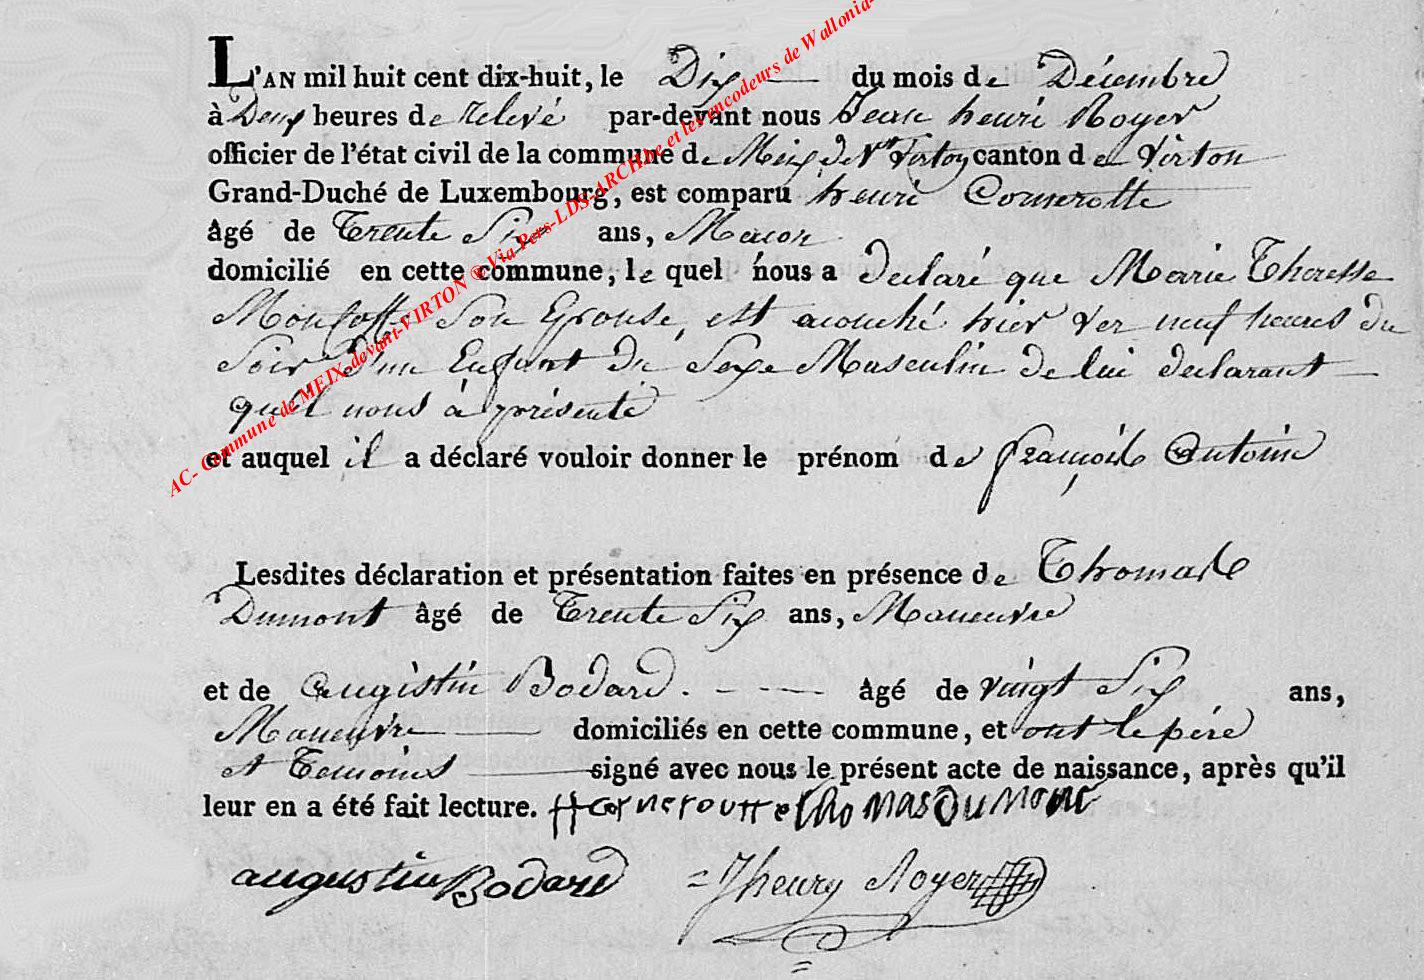 L'AN mil huit cent dix-huit, le Dix du mois de Décembre
à Deux heures de relevé par-devant nous Jean henri Royer
officier de l'état civil de la commune de Meix dvt Virton canton de Virton
Grand-Duché de Luxembourg, est comparu henri Connerotte
âgé de Trente Six ans, Macon
domicilié en cette commune, le quel nous a declaré que Marie Theresse
son Epouse, est acouché hier ver neuf heures du
Soir D'un Enfant Du Sexe Masculin de lui declarant
qu'il nous à présenté
et auquel il a déclaré vouloir donner le prénom de françois Antoine
Lesdites déclaration et présentation faites en présence de Thomas
Dumont âgé de Trente Six ans, Maneuvre
et de augistin Bodard. - - - âgé de vingt Six ans,
Maneuvre domiciliés en cette commune, et ont le pére
et Temoins signé avec nous le présent acte de naissance, après qu'il
leur en a été fait lecture. H Coneroutte thomas Dumont
augustin Bodard Jhenry Royer
AC- Commune de MEIX-devant-VIRTON ® Via Pers-LDS-ARCH.be et les encodeurs de Wallonia-